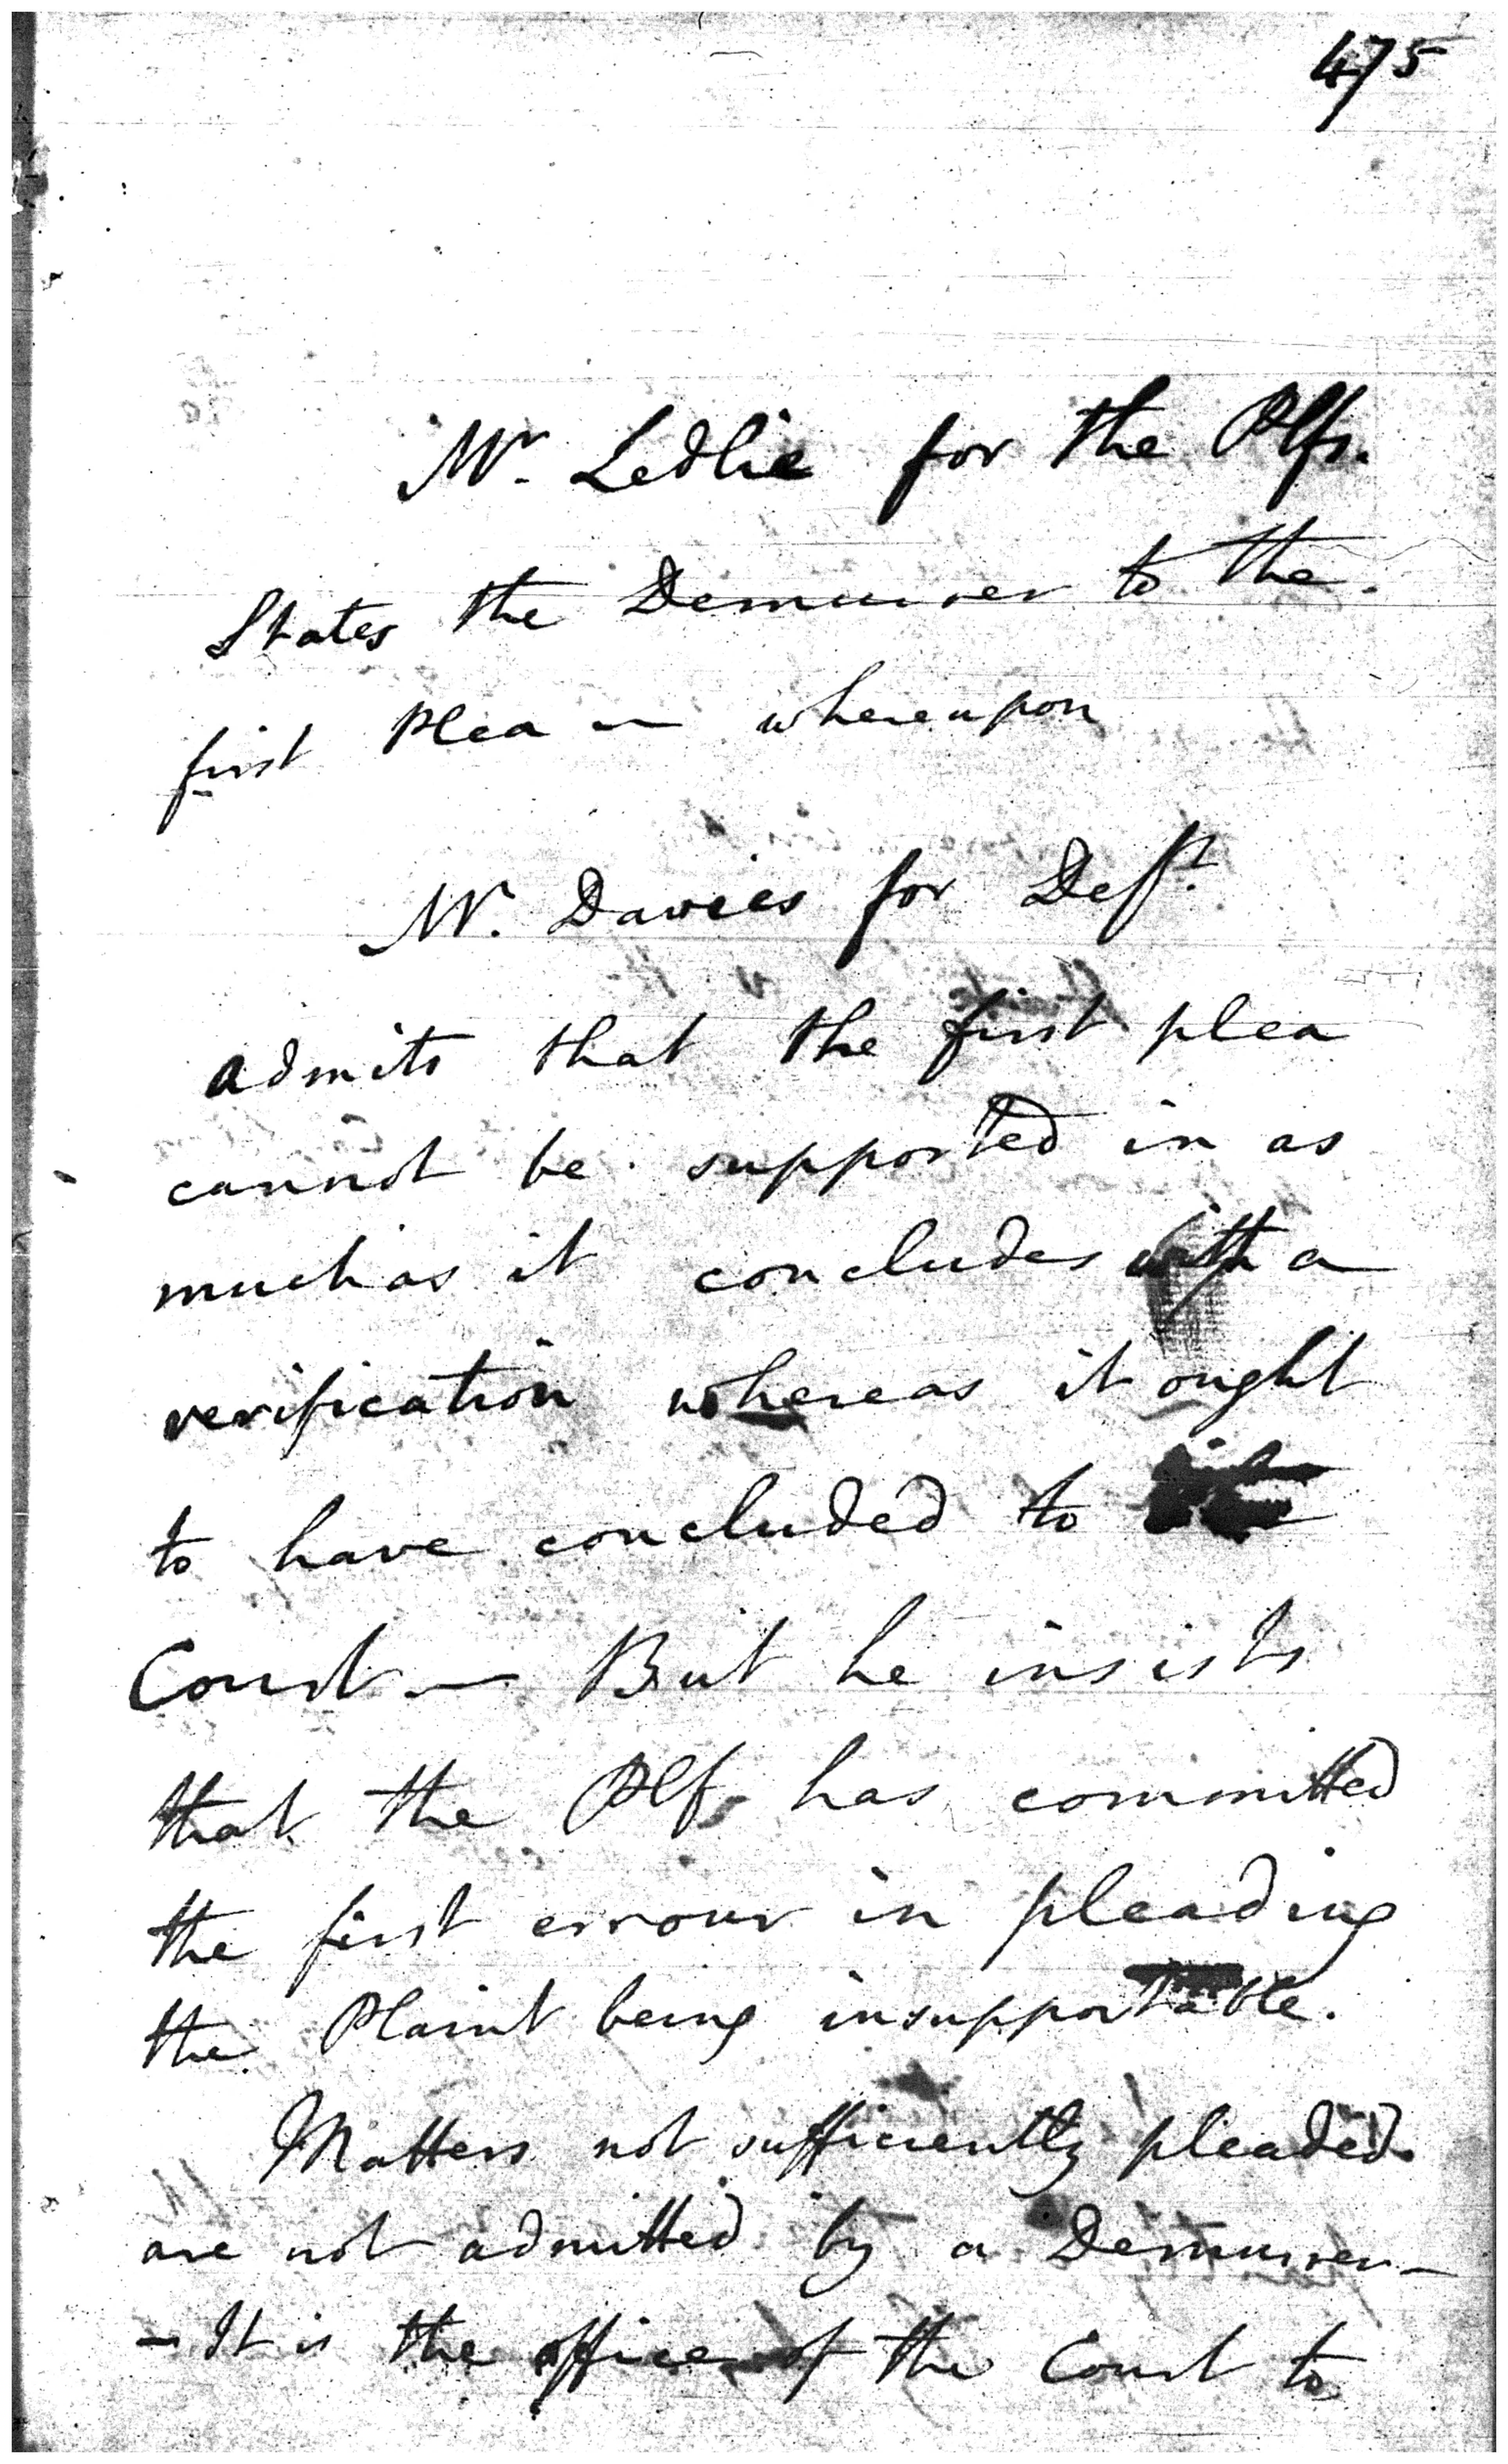 475
Mr. Ledlie for the Plfs.
States the Demurrer to the
first Plea — whereupon
Mr. Davies for Deft.
admits that the first plea
cannot be supported in as
much as it concludes with a
verification whereas it ought
to have concluded to
Court — But he insists
that the Plf has committed
the first errour in pleading
the Plaint being insupportable.
Matters not sufficiently pleaded
are not admitted by a Demurrer —
— It is the office of the Court to